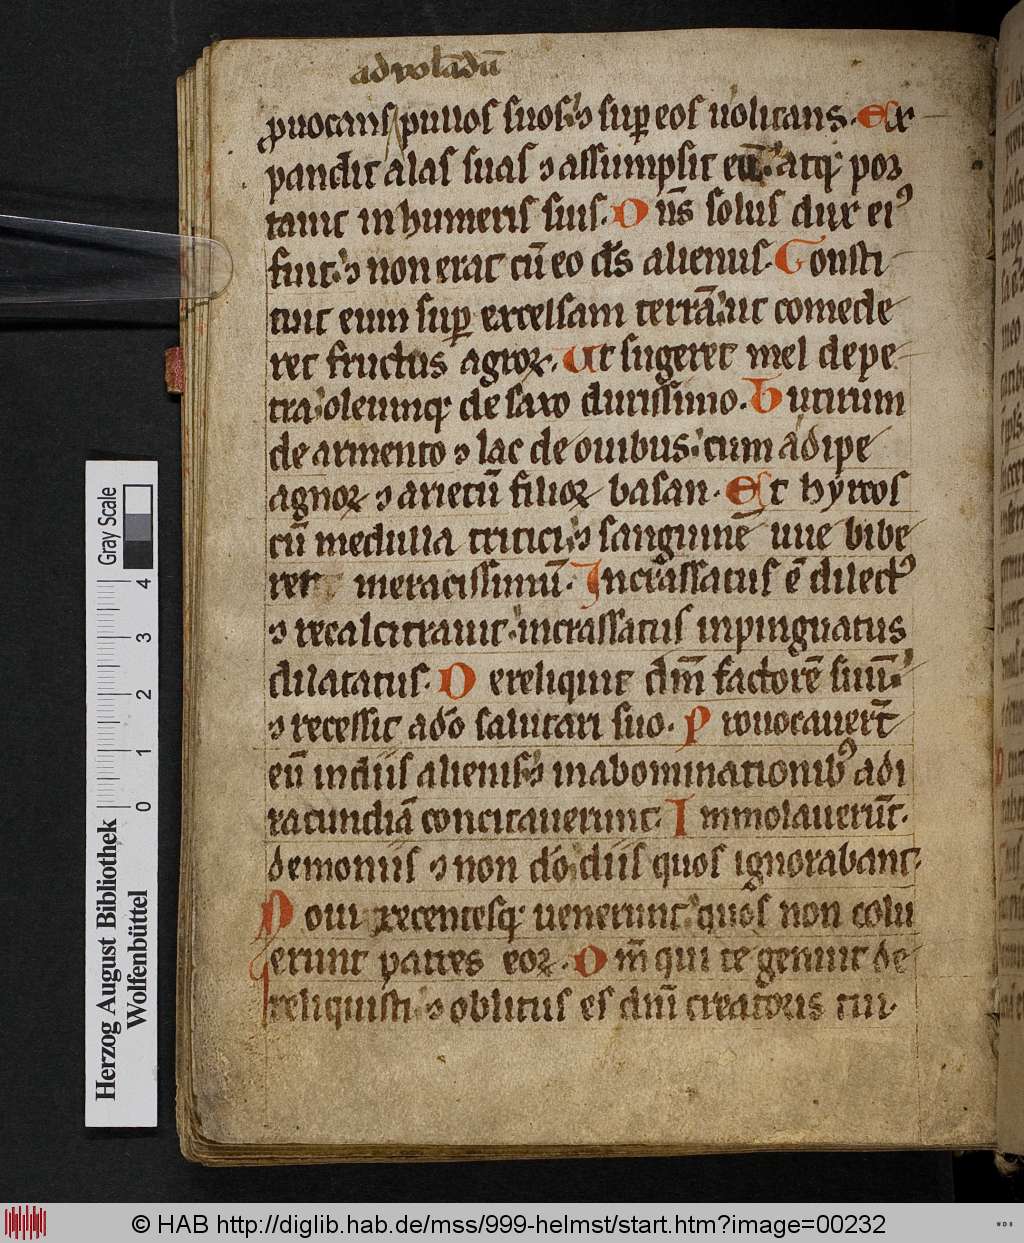 advolādū
ꝓuocans pullos suos ⁊ suꝑ eos uolitans. Ex
pandit alas suas ⁊ assumpsit eū. atqꝫ por
tauit in humeris suis. Dn̄s solus dux eiꝰ
fuit. ⁊ non erat cū eo ds̄ alienus. Consti
tuit eum suꝑ excelsam terrā. ut comede
ret fructus agroꝝ. Ut sugeret mel de pe
tra. oleumqꝫ de saxo durissimo. Butirum
de armento ⁊ lac de ouibus. cum adipe
agnoꝝ ⁊ arietū filioꝝ basan. Et hyrcos
cū medulla tritici. ⁊ sanguinē uue bibe
ret meracissimū. Incrassatus ē dilectꝰ
⁊ recalcitrauit. incrassatus inpinguatus
dilatatus. Dereliquit dm̄ factorē suū.
⁊ recessit a do̅ salutari suo. Prouocauert̄
eū in diis alienis. ⁊ in abominationibꝰ ad i
racundiā concitauerunt. Immolauerūt.
demoniis ⁊ non do̅. diis quos ignorabant.
Noui recentesqꝫ uenerunt. quos non colu
erunt patres eoꝝ. Dm̄ qui te genuit de
reliquisti. ⁊ oblitus es dn̄i creatoris tui.
Herzog August Bibliothek
Wolfenbüttel
Gray Scale
0 1 2 3 4
© HAB http://diglib.hab.de/mss/999-helmst/start.htm?image=00232
WDB